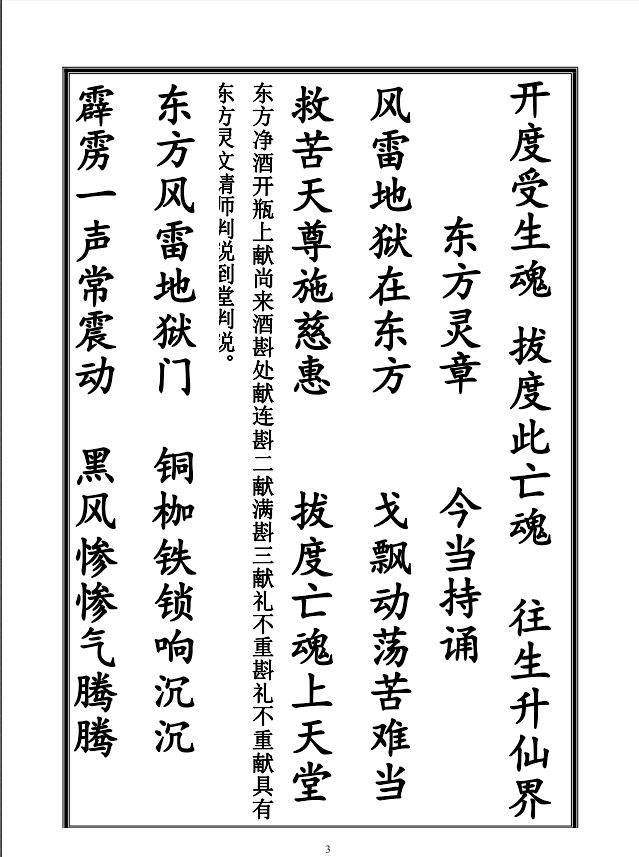 开度受生魂 拔度此亡魂 往生升仙界
东方灵章 今当持诵
风雷地狱在东方 戈飘动荡苦难当
救苦天尊施慈惠 拔度亡魂上天堂
东方净酒开瓶上献尚来酒斟处献连斟二献满斟三献礼不重斟礼不重献具有
东方灵文请师判说到堂判说。
东方风雷地狱门 铜枷铁锁响沉沉
霹雳一声常震动 黑风惨惨气腾腾
3